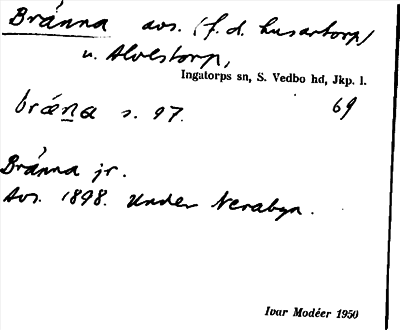 Bránna avs. (f.d. husartorp)
u. Alvestorp,
Ingatorps sn, S. Vedbo hd, Jkp. l.
bræ̀na s. 97. 69
Bránna jr.
Avs. 1898. Under Nerabyn.
Ivar Modéer 1950